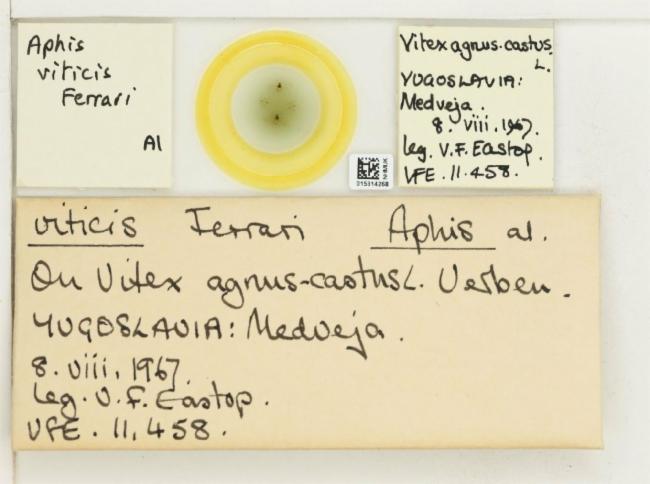 Aphis
viticis
Ferrari
Al
Vitex agnus-castus
L.
YUGOSLAVIA:
Medveja.
8. viii. 1967.
leg. V.F. Eastop.
VFE. 11.458.
NHMUK
015914268
viticis Ferrari Aphis al.
On Vitex agnus-castus L. Verben.
YUGOSLAVIA: Medveja.
8. viii. 1967.
Leg. V. F. Eastop.
VFE. 11,458.